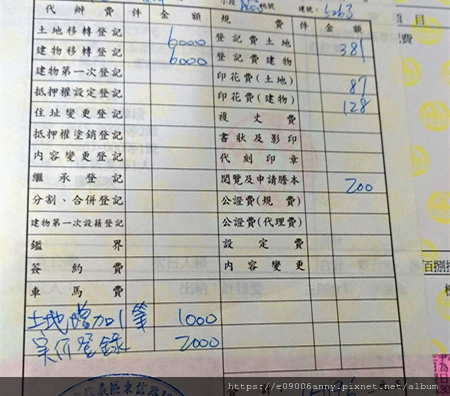 建號: 5263
代辦費 件 金額 規費 件 金額 項目
土地移轉登記 6000 登記費土地 381
建物移轉登記 6000 登記費建物
建物第一次登記 印花費(土地) 87
抵押權設定登記 印花費(建物) 128
住址變更登記 複丈費
抵押權塗銷登記 書狀及影印
內容變更登記 代刻印章
繼承登記 閱覽及申請謄本 200
分割、合併登記 公證費(規費)
建物第一次設籍登記 公證費(代理費)
鑑界 設定費
簽約費 內容變更
車馬費
土地增加1筆 1000
實價登錄 2000
合計
百捌拾
https://e09006anny1.pixnet.net/album